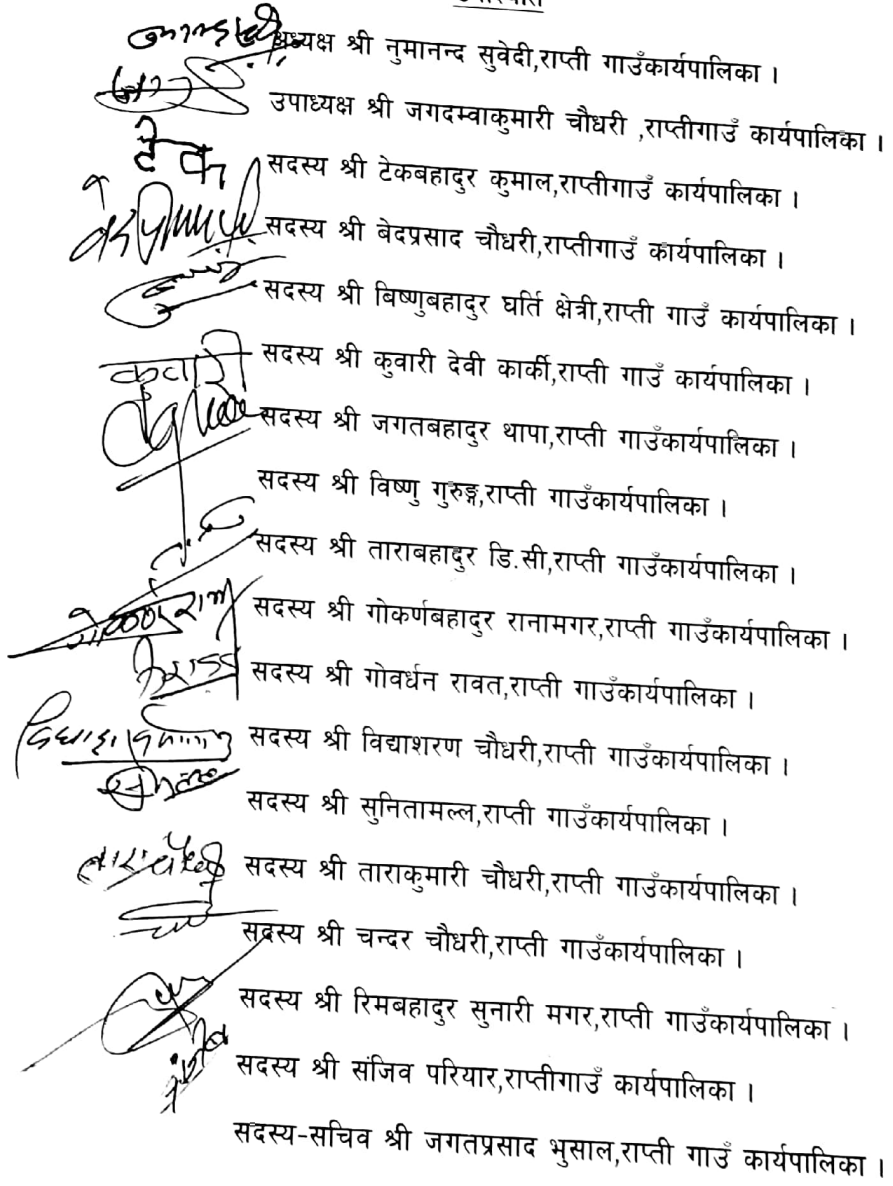 अध्यक्ष श्री नुमानन्द सुवेदी,राप्ती गाउँकार्यपालिका ।
उपाध्यक्ष श्री जगदम्वाकुमारी चौधरी ,राप्तीगाउँ कार्यपालिका ।
टेक
सदस्य श्री टेकबहादुर कुमाल,राप्तीगाउँ कार्यपालिका ।
सदस्य श्री बेदप्रसाद चौधरी,राप्तीगाउँ कार्यपालिका ।
सदस्य श्री बिष्णुबहादुर घर्ति क्षेत्री,राप्ती गाउँ कार्यपालिका ।
कुवारी
सदस्य श्री कुवारी देवी कार्की,राप्ती गाउँ कार्यपालिका ।
सदस्य श्री जगतबहादुर थापा,राप्ती गाउँकार्यपालिका ।
सदस्य श्री विष्णु गुरुङ्ग,राप्ती गाउँकार्यपालिका ।
सदस्य श्री ताराबहादुर डि.सी,राप्ती गाउँकार्यपालिका ।
सदस्य श्री गोकर्णबहादुर रानामगर,राप्ती गाउँकार्यपालिका ।
सदस्य श्री गोवर्धन रावत,राप्ती गाउँकार्यपालिका ।
सदस्य श्री विद्याशरण चौधरी,राप्ती गाउँकार्यपालिका ।
सदस्य श्री सुनितामल्ल,राप्ती गाउँकार्यपालिका ।
सदस्य श्री ताराकुमारी चौधरी,राप्ती गाउँकार्यपालिका ।
सदस्य श्री चन्दर चौधरी,राप्ती गाउँकार्यपालिका ।
सदस्य श्री रिमबहादुर सुनारी मगर,राप्ती गाउँकार्यपालिका ।
सदस्य श्री संजिव परियार,राप्तीगाउँ कार्यपालिका ।
सदस्य-सचिव श्री जगतप्रसाद भुसाल,राप्ती गाउँ कार्यपालिका ।